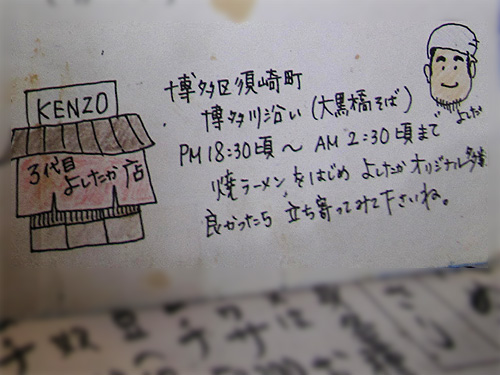 KENZO
3代目
よしたか店
博多区須崎町
博多川沿い (大黒橋そば)
PM 18:30頃 〜 AM 2:30頃まで
焼ラーメンをはじめ よしたかオリジナル多数
良かったら 立ち寄ってみて下さいね。
よしたか